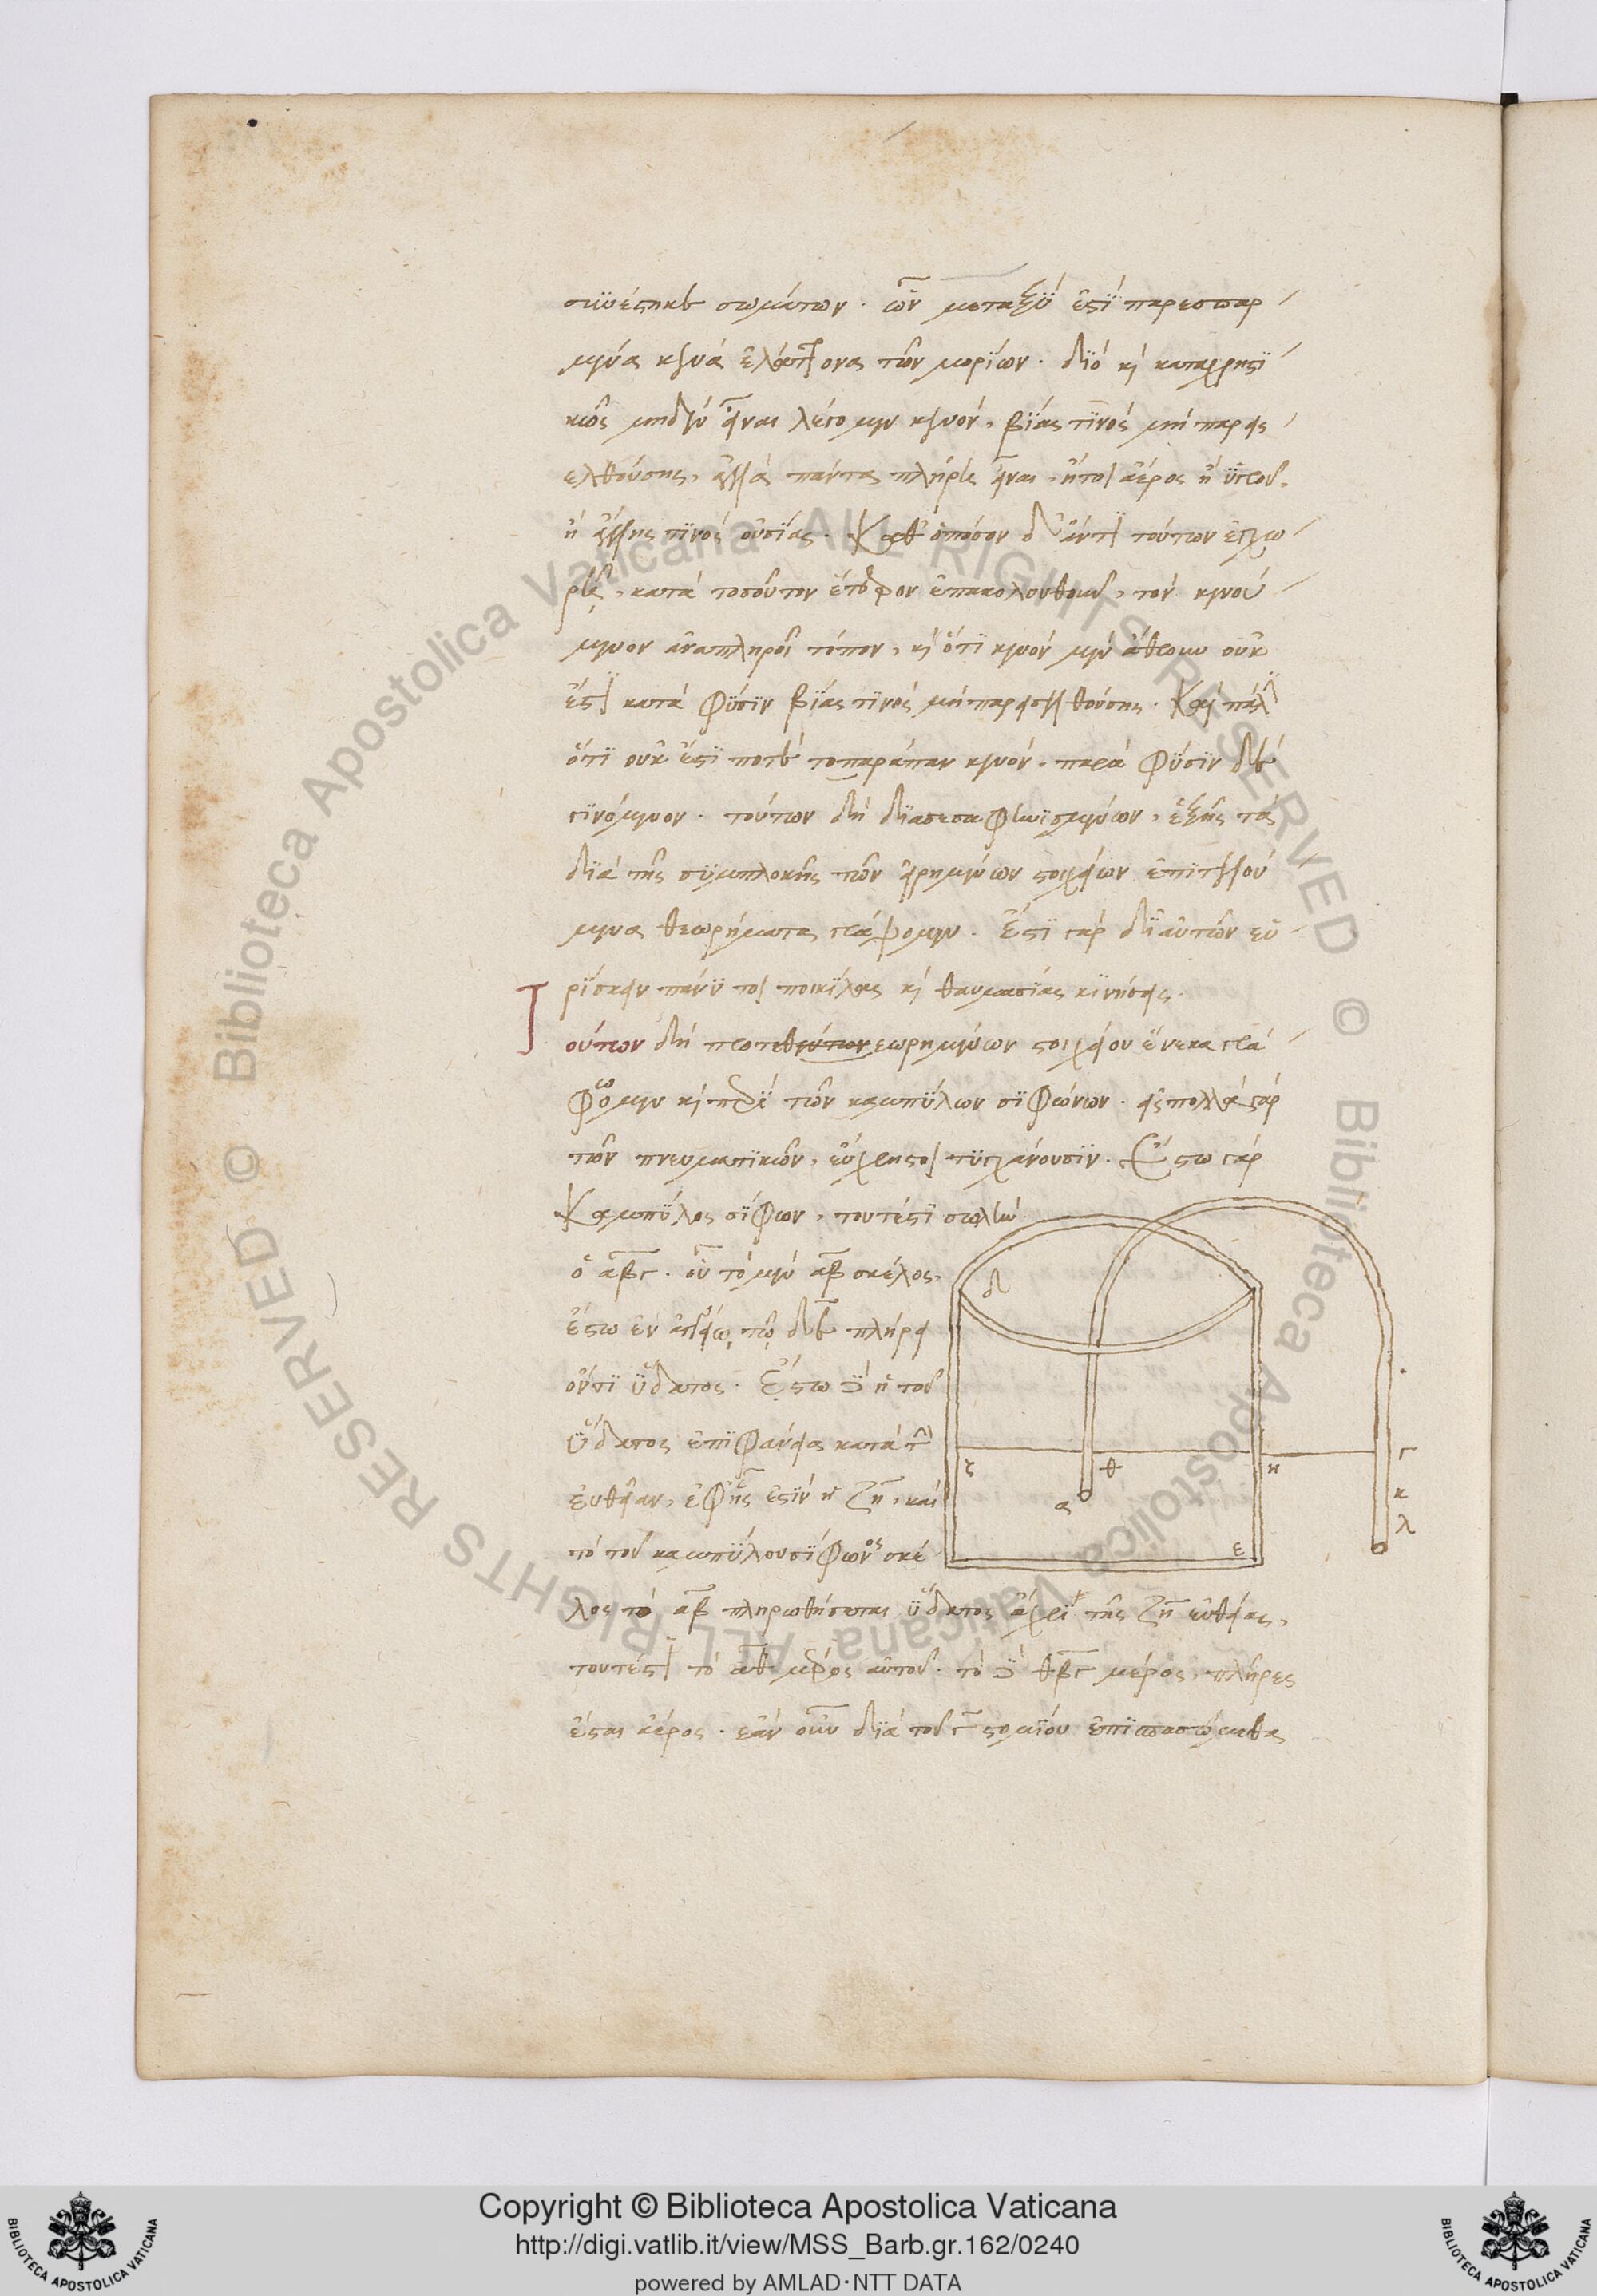 συνέστηκε σωμάτων. ὧν μεταξύ ἐστί παρεσπαρ
μένα κενά ἐλάττονα τῶν μορίων. διό καὶ καταχρηστι
κῶς μηδέν εἶναι λέγομεν κενόν, βίας τινός μή παρεισ
ελθούσης, ἀλλά πάντα πλήρη εἶναι, ἤτοι ἀέρος ἢ ὑγροῦ,
ἢ ἄλλης τινός οὐσίας. Καθ' ὁπόσον δ' ἄν τι τούτων ἐκχω
ρῇ, κατά τοσοῦτον ἕτερον ἐπακολουθοῦν, τόν κενού
μενον ἀναπληροῖ τόπον, καὶ ὅτι κενόν μέν ἄθρουν οὐκ
ἔστι κατά φύσιν βίας τινός μή παρεισελθούσης. Καὶ πάλιν
ὅτι οὐκ ἔστι ποτέ τοπαράπαν κενόν. παρά φύσιν δέ
γινόμενον. τούτων δή διασεσαφηνισμένων, ἑξῆς τά
διά τῆς συμπλοκῆς τῶν εἰρημένων στοιχείων ἐπιτελού
μενα θεωρήματα γράψομεν. Ἔστι γάρ δι' αὐτῶν εὑ
ρίσκειν πάνυ τοι ποικίλας καὶ θαυμασίας κινήσεις.
Τούτων δή προτεθέντων εωρημένων στοιχείου ἕνεκα γρά
φομεν καὶ περί τῶν καμπύλων σιφώνων. εἰς πολλά γάρ
τῶν πνευματικῶν, εὔχρηστοι τυγχάνουσιν. Ἔστω γάρ
Καμπύλος σίφων, τουτέστι σωλήν
ὁ αβγ. οὗ τό μέν αβ σκέλος,
ἔστω ἐν ἀγγείῳ τῷ δε πλήρει
ὄντι ὕδατος. Ἔστω δέ ἡ τοῦ
ὕδατος ἐπιφάνεια κατά τήν
εὐθεῖαν, ἐφ' ἧς ἐστίν ἡ ζη, καί
τό τοῦ καμπύλου σίφωνος σκέ
λος τό αβ πληρωθήσεται ὕδατος ἄχρι τῆς ζη εὐθείας,
τουτέστι τό αθ μέρος αὐτοῦ. τό δέ θβγ μέρος, πλῆρες
ἔσται ἀέρος. ἐάν οὖν διά τοῦ γ στομίου ἐπισπασώμεθα
δ
ζ θ η γ
α κ
λ
ε
Biblioteca Apostolica Vaticana ALL RIGHTS RESERVED © Biblioteca Apostolica Vaticana ALL RIGHTS RESERVED ©
Copyright © Biblioteca Apostolica Vaticana
http://digi.vatlib.it/view/MSS_Barb.gr.162/0240
powered by AMLAD·NTT DATA
BIBLIOTECA APOSTOLICA VATICANA
BIBLIOTECA APOSTOLICA VATICANA